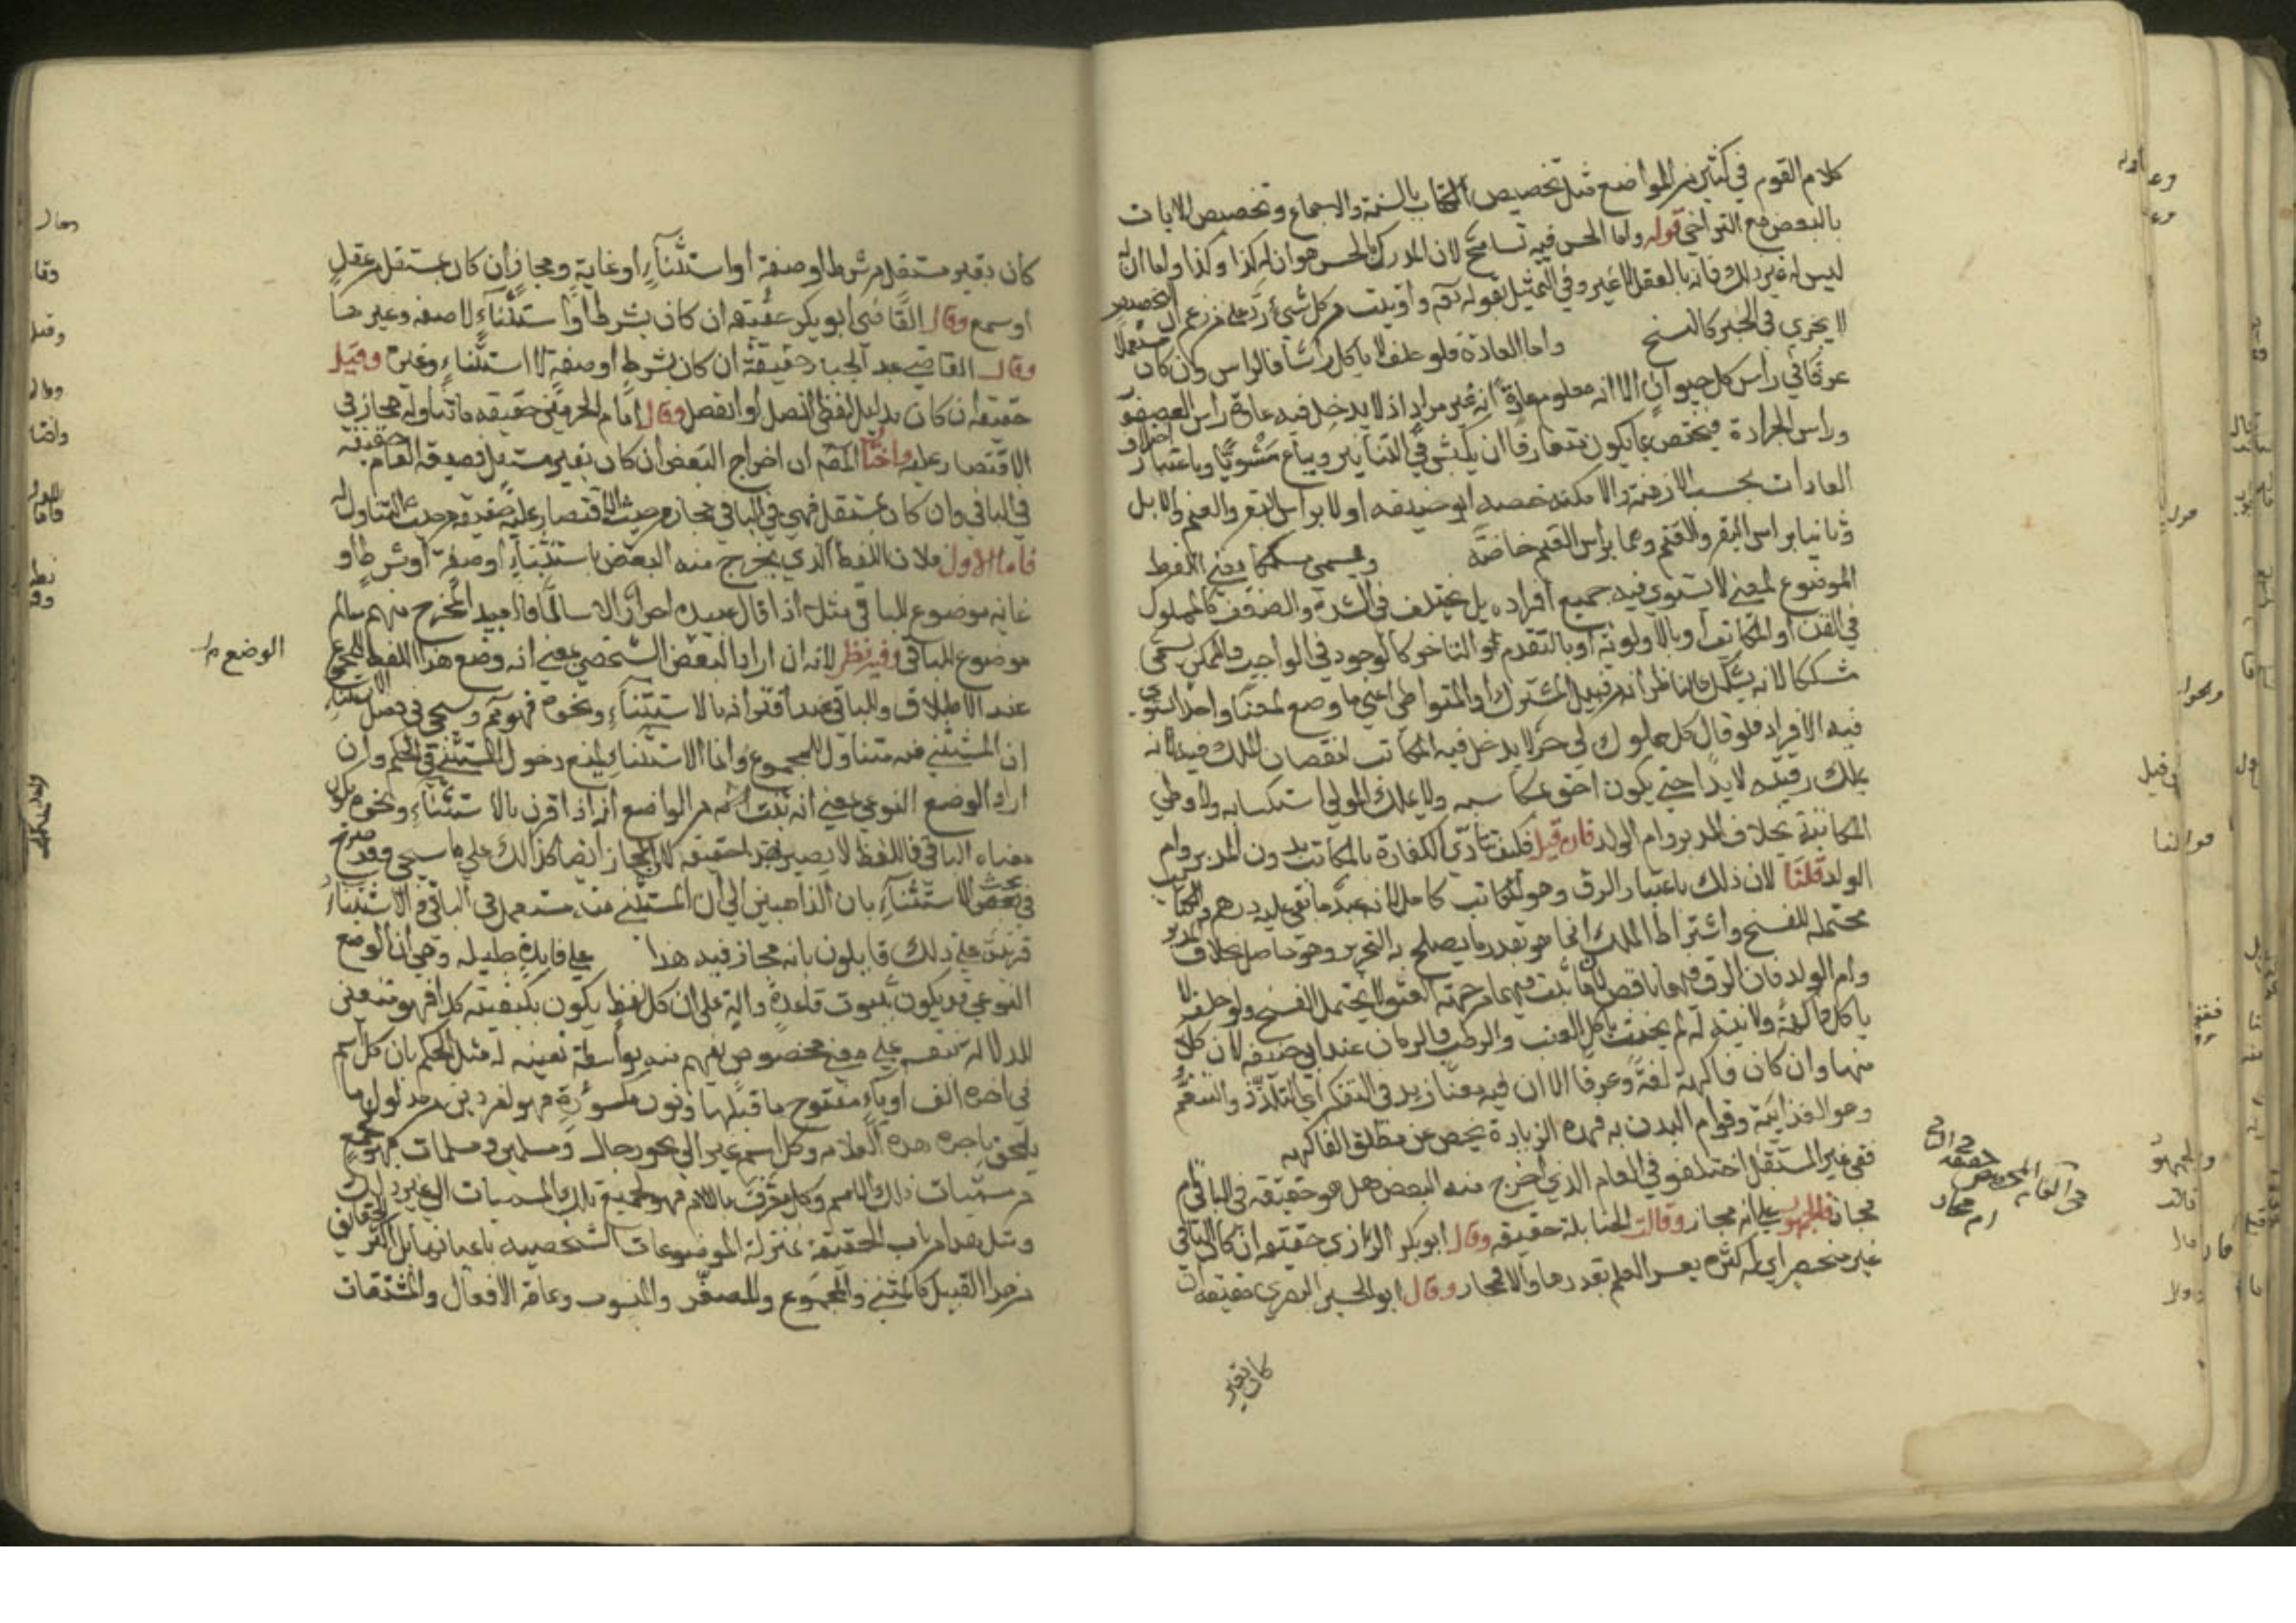 كلام القوم في كثير من المواضع مثل تخصيص الكتاب بالسنة والاجماع وتخصيص الايات
بالبعض مع التراخي قوله واما الحس فيه تسامح لان المدرك بالحس هو ان له كذا وكذا واما انه
ليس له غير ذلك فانه بالعقل لا غير وفي التمثيل بقوله تعـ واوتيت من كل شيء رد على من زعم ان التخصيص
لا يجري في الخبر كالنسخ واما العادة فلو حلف لا ياكل راسا فالراس وان كان مستعملا
عرفا في راس كل حيوان الا انه معلوم عادة انه غير مراد اذ لا يدخل فيه عادة راس العصفور
وراس الجرادة فيختص بما يكون متعارفا ان يكبس في التنانير ويباع مشويا وباعتبار اختلاف
العادات بحسب الازمنة والامكنة خصه ابو حنيفه اولا براس البقر والغنم والابل
وثانيا براس البقر والغنم وهما براس الغنم خاصة ويسمى مشككا يعني اللفظ
الموضوع لمعنى لا يستوي فيه جميع افراده بل يختلف في الشدة والضعف كالمملوك
في القن او المكاتب او بالاولوية او بالتقدم او التاخر كالوجود في الواجب والممكن يسمى
مشككا لانه يشكك الناظر انه من قبيل المشترك او المتواطي اعني ما وضع لمعنا واحد استوى
فيه الافراد فلو قال كل مملوك لي حر لا يدخل فيه المكاتب لنقصان الملك فيه لانه
يملك رقبة لا يدا حتى يكون احق بمكاسبه ولا يملك المولى استكسابه ولا وطي
المكاتبة بخلاف المدبر وام الولد فان قيل فكيف تتادي الكفارة بالمكاتب دون المدبر وام
الولد قلنا لان ذلك باعتبار الرق وهو في المكاتب كامل لانه عبد ما بقي عليه درهم والكتابة
محتملة للفسخ واشتراط الملك انما هو بقدر ما يصلح به التحرير وهو حاصل بخلاف المدبر
وام الولد فان الرق فيهما ناقص لان ما ثبت فيهما من جهة العتق لا يحتمل الفسخ ولو حلف لا
ياكل فاكهة ولا نية له لم يحنث باكل العنب والرطب والرمان عند ابي حنيفه لان كلا
منها وان كان فاكهة لغة وعرفا الا ان فيه معنا زايد في التفكه اي التلذذ والتنعم
وهو الغذائية وقوام البدن به فهذه الزيادة يخص عن مطلق الفاكهة
ففي غير المستقل اختلفو في العام الذي اخرج منه البعض هل هو حقيقة في الباقي ام
مجاز فالجمهور على انه مجاز وقالت الحنابلة حقيقه وقال ابو بكر الرازي حقيقة ان كان الباقي
غير منحصر اي له كثرة يعسر العلم بقدرها والا فمجاز وقال ابو الحسين البصري حقيقه ان
كان بغير
كان بغير مستقل من شرط او صفة او استثناء او غاية ومجاز ان كان بمستقل من عقل
او سمع وقال القاضي ابو بكر حقيقه ان كان بشرط او استثناء لا صفه وغيرها
وقال القاضي عبد الجبار حقيقة ان كان بشرط او صفة لا استثناء وغيره وقيل
حقيقه ان كان بدليل لفظي اتصل او انفصل وقال امام الحرمين حقيقه فيما تناوله مجاز في
الاقتصار عليه واختار المصـ ان اخراج البعض ان كان بغير مستقل فصيغة العام حقيقة
في الباقي وان كان بمستقل فهي في الباقي مجاز من حيث الاقتصار عليه حقيقة من حيث التناول له
فاما الاول فلان اللفظ الذي يخرج منه البعض باستثناء او صفة او شرط او
غاية موضوع للباقي مثلا اذا قال عبيده احرار الا سالما فالعبيد المخرج منهم سالم
موضوع للباقي وفيه نظر لانه ان اراد البعض الشخصي بمعنى انه وضع هذا اللفظ للمجموع
الوضع
عند الاطلاق وللباقي عند اقترانه بالاستثناء ونحوه فهو ثم وسيجي في فصل الاستثناء
ان المستثنى منه متناول للمجموع وانما الاستثناء يمنع دخول المستثنى في الحكم وان
اراد الوضع النوعي بمعنى انه ثبت انه من الواضع انه اذا اقترن بالاستثناء ونحوه يكون
معناه الباقي فاللفظ لا يصير بهذا حقيقة لان المجاز ايضا كذلك على ما سيجي وقد صرح
في بحث الاستثناء بان الذاهبين الى ان المستثنى منه مستعمل في الباقي والاستثناء
قرينة على ذلك قايلون بانه مجاز فيه هذا على فايدة جليله وهي ان الوضع
النوعي قد يكون بثبوت قاعدة دالة على ان كل لفظ يكون بكيفية كذا فهو متعين
للدلاله بنفسه على معنى مخصوص يفهم منه بواسطة تعينه له مثل الحكم بان كل اسم
في اخره الف او ياء مفتوح ما قبلها ونون مكسورة فهو لفردين من مدلول ما
يلحق باخره هذه العلامه وكل اسم غير الى نحو رجال ومسلمين ومسلمات فهو لجمع
من مسميات ذلك الاسم وكل معرف باللام فهو لجميع تلك المسميات الى غير ذلك
ومثل هذا من باب الحقيقة بمنزلة الموضوعات الشخصية باعيانها بل اكثر الحقايق
من هذا القبيل كالمثنى والمجموع والمصغر والمنسوب وعامة الافعال والمشتقات